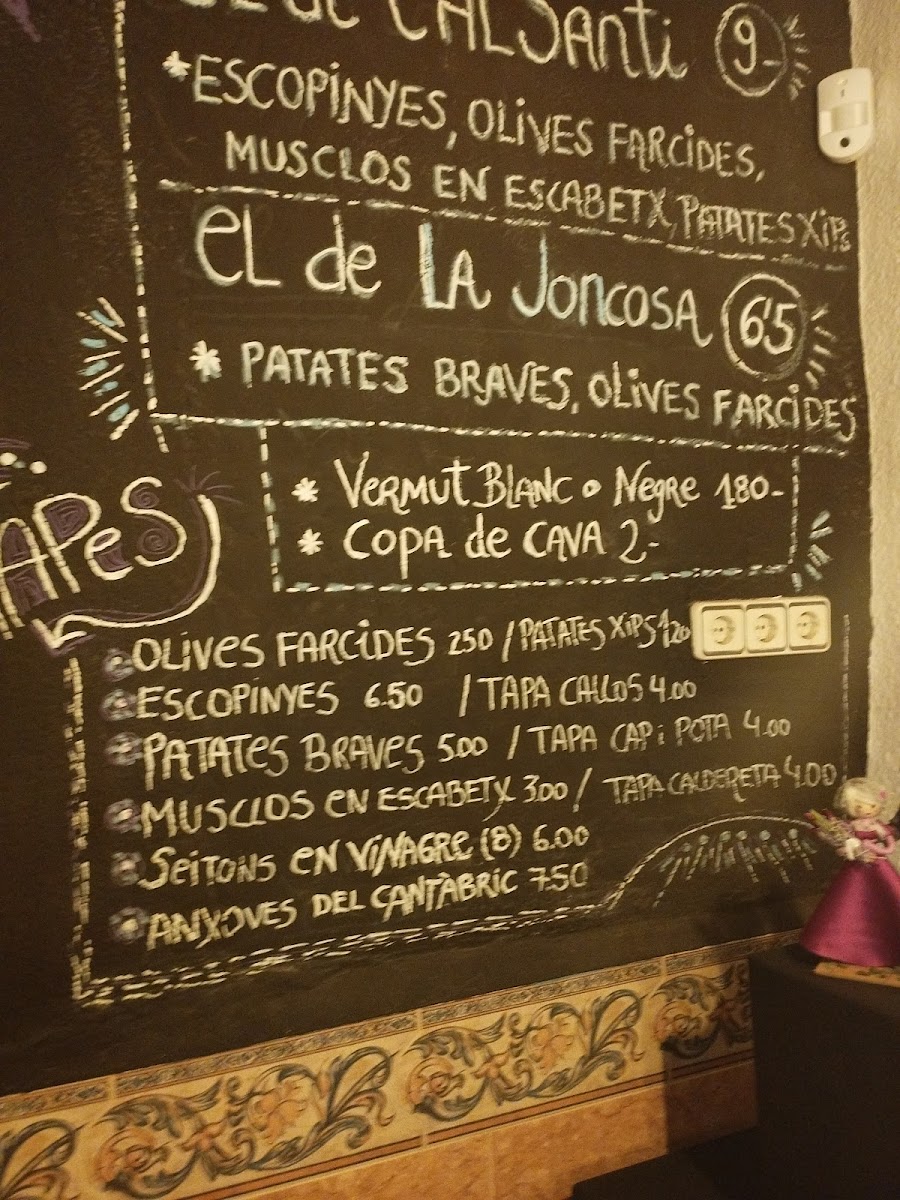 de CAL SAnti 9-
* ESCOPiNYES, OLiVES FARCiDES,
MUSCLOS EN ESCABETX, PATATES XiPs
EL de LA JonCOSA 6'5
* PATATES BRAVES, OLiVES FARCiDES
* VERMUT BLANC o Negre 180-
* COPA de CAVA 2-
TAPeS
OLiVeS FARCiDES 250 / PATATES XiPS 1.20
ESCOPiNYES 6.50 / TAPA CALLOS 4.00
PATATeS BRAVeS 5.00 / TAPA CAP i POTA 4.00
MUSCLOS en ESCABETX 3.00 / TAPA CALDERETA 4.00
SeiTONS EN ViNAGRe (8) 6.00
ANXOVES DEL CANTÀBRIC 7.50